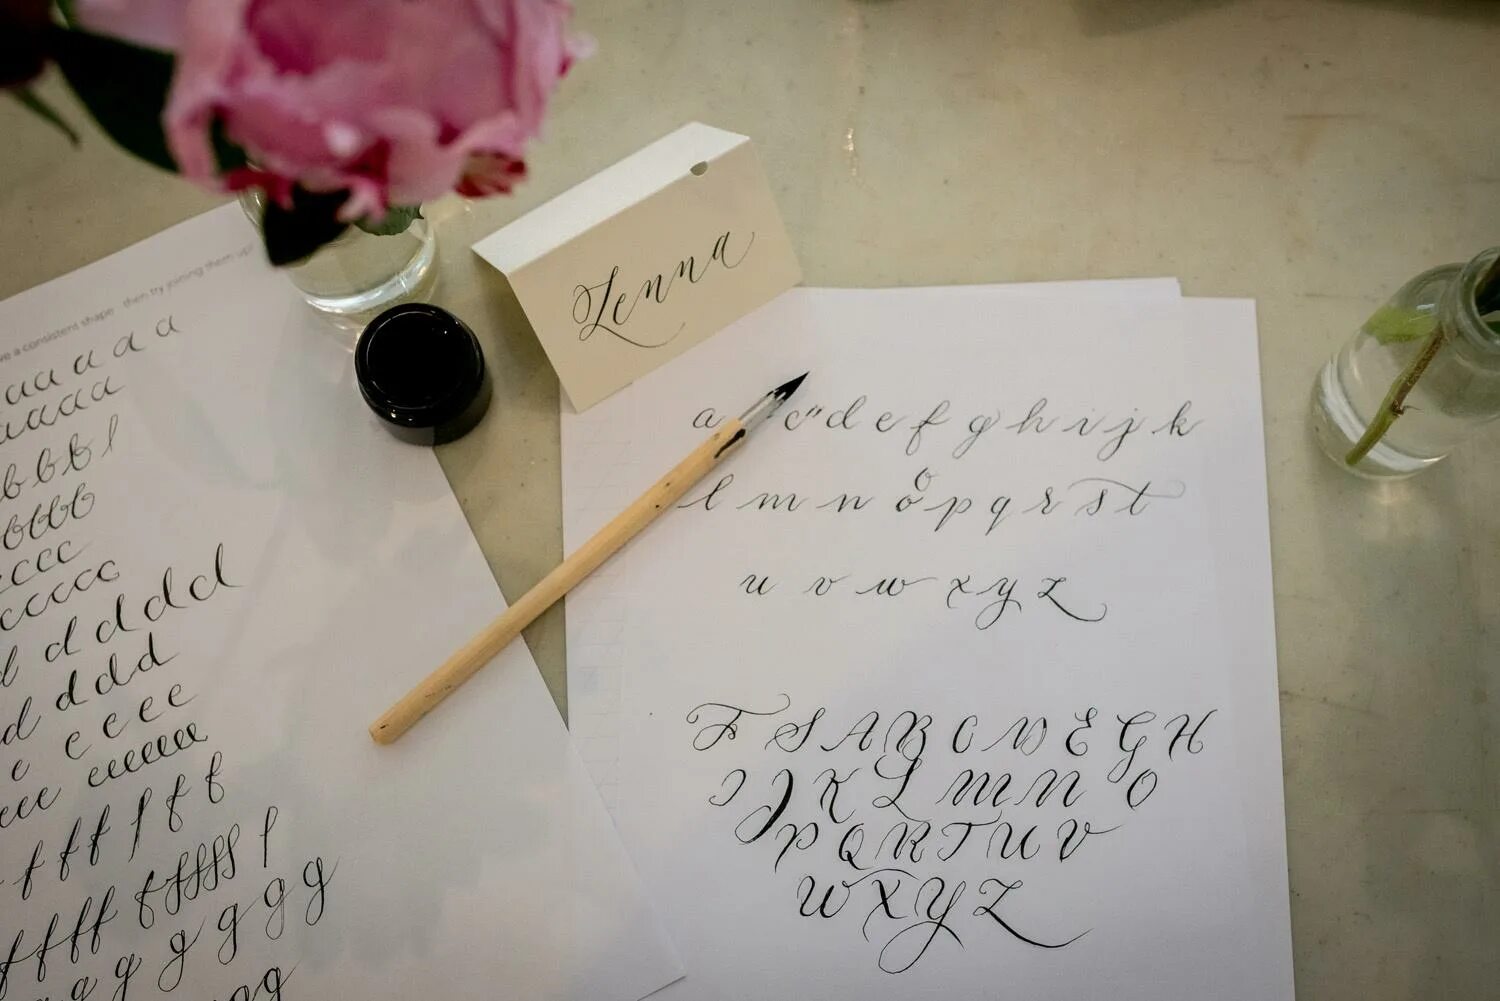 Lenna
ve a consistent shape - then try joining them up!
aaa a a a
aaaaa
bbb l
bbbb
cccc
ccccc
d d d d d
d d d d
e e e e
eee eeeeee
f f f f f f
f f f f f f f f f l
g g g g g g
g g
a c d e f g h i j k
l m n o p q r s t
u v w x y z
F S A B C D E G H
I J K L M N O
P Q R T U V
W X Y Z